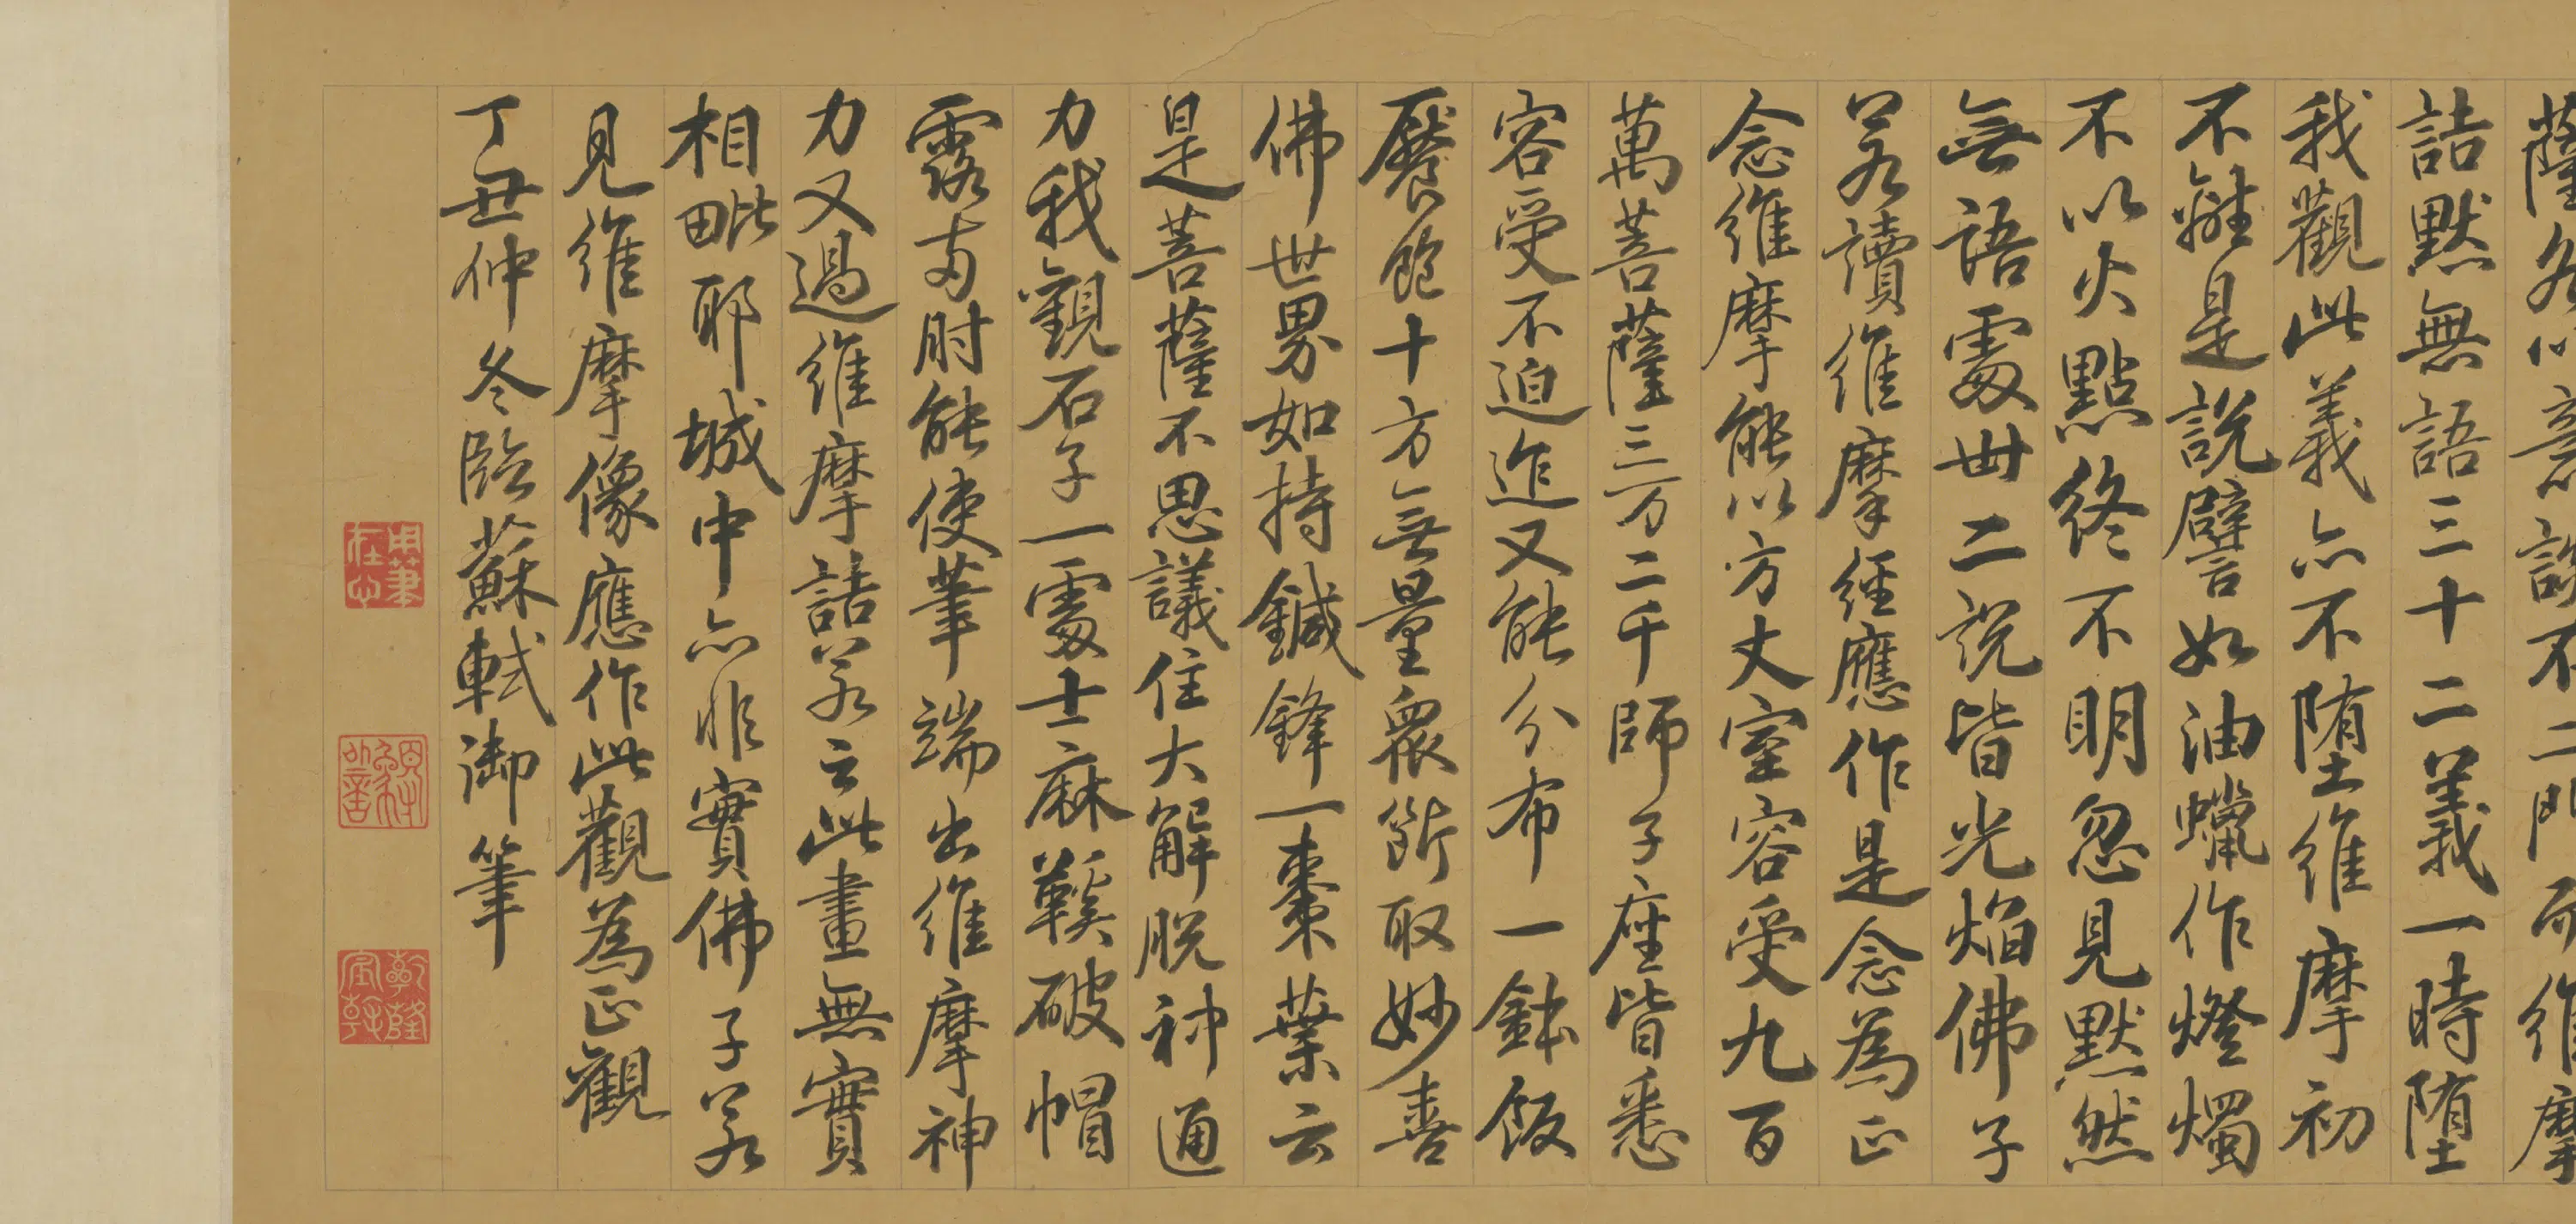 薩各以意談不二門而維摩
詰默無語三十二義一時墮
我觀此義亦不墮維摩初
不離是說譬如油蠟作燈燭
不以火點終不明忽見默然
無語處卅二說皆光焰佛子
若讀維摩經應作是念為正
念維摩能以方丈室容受九百
萬菩薩三万二千師子座皆悉
容受不迫迮又能分布一鉢飯
饜飽十方無量眾斷取妙喜
佛世界如持鍼鋒一棗葉云
是菩薩不思議住大解脫神通
力我觀石子一處士麻鞵破帽
露兩肘能使筆端出維摩神
力又過維摩詰若云此畫無實
相毗耶城中亦非實佛子若
見維摩像應作此觀為正觀
丁丑仲冬臨蘇軾御筆
用筆在心
乾隆宸翰